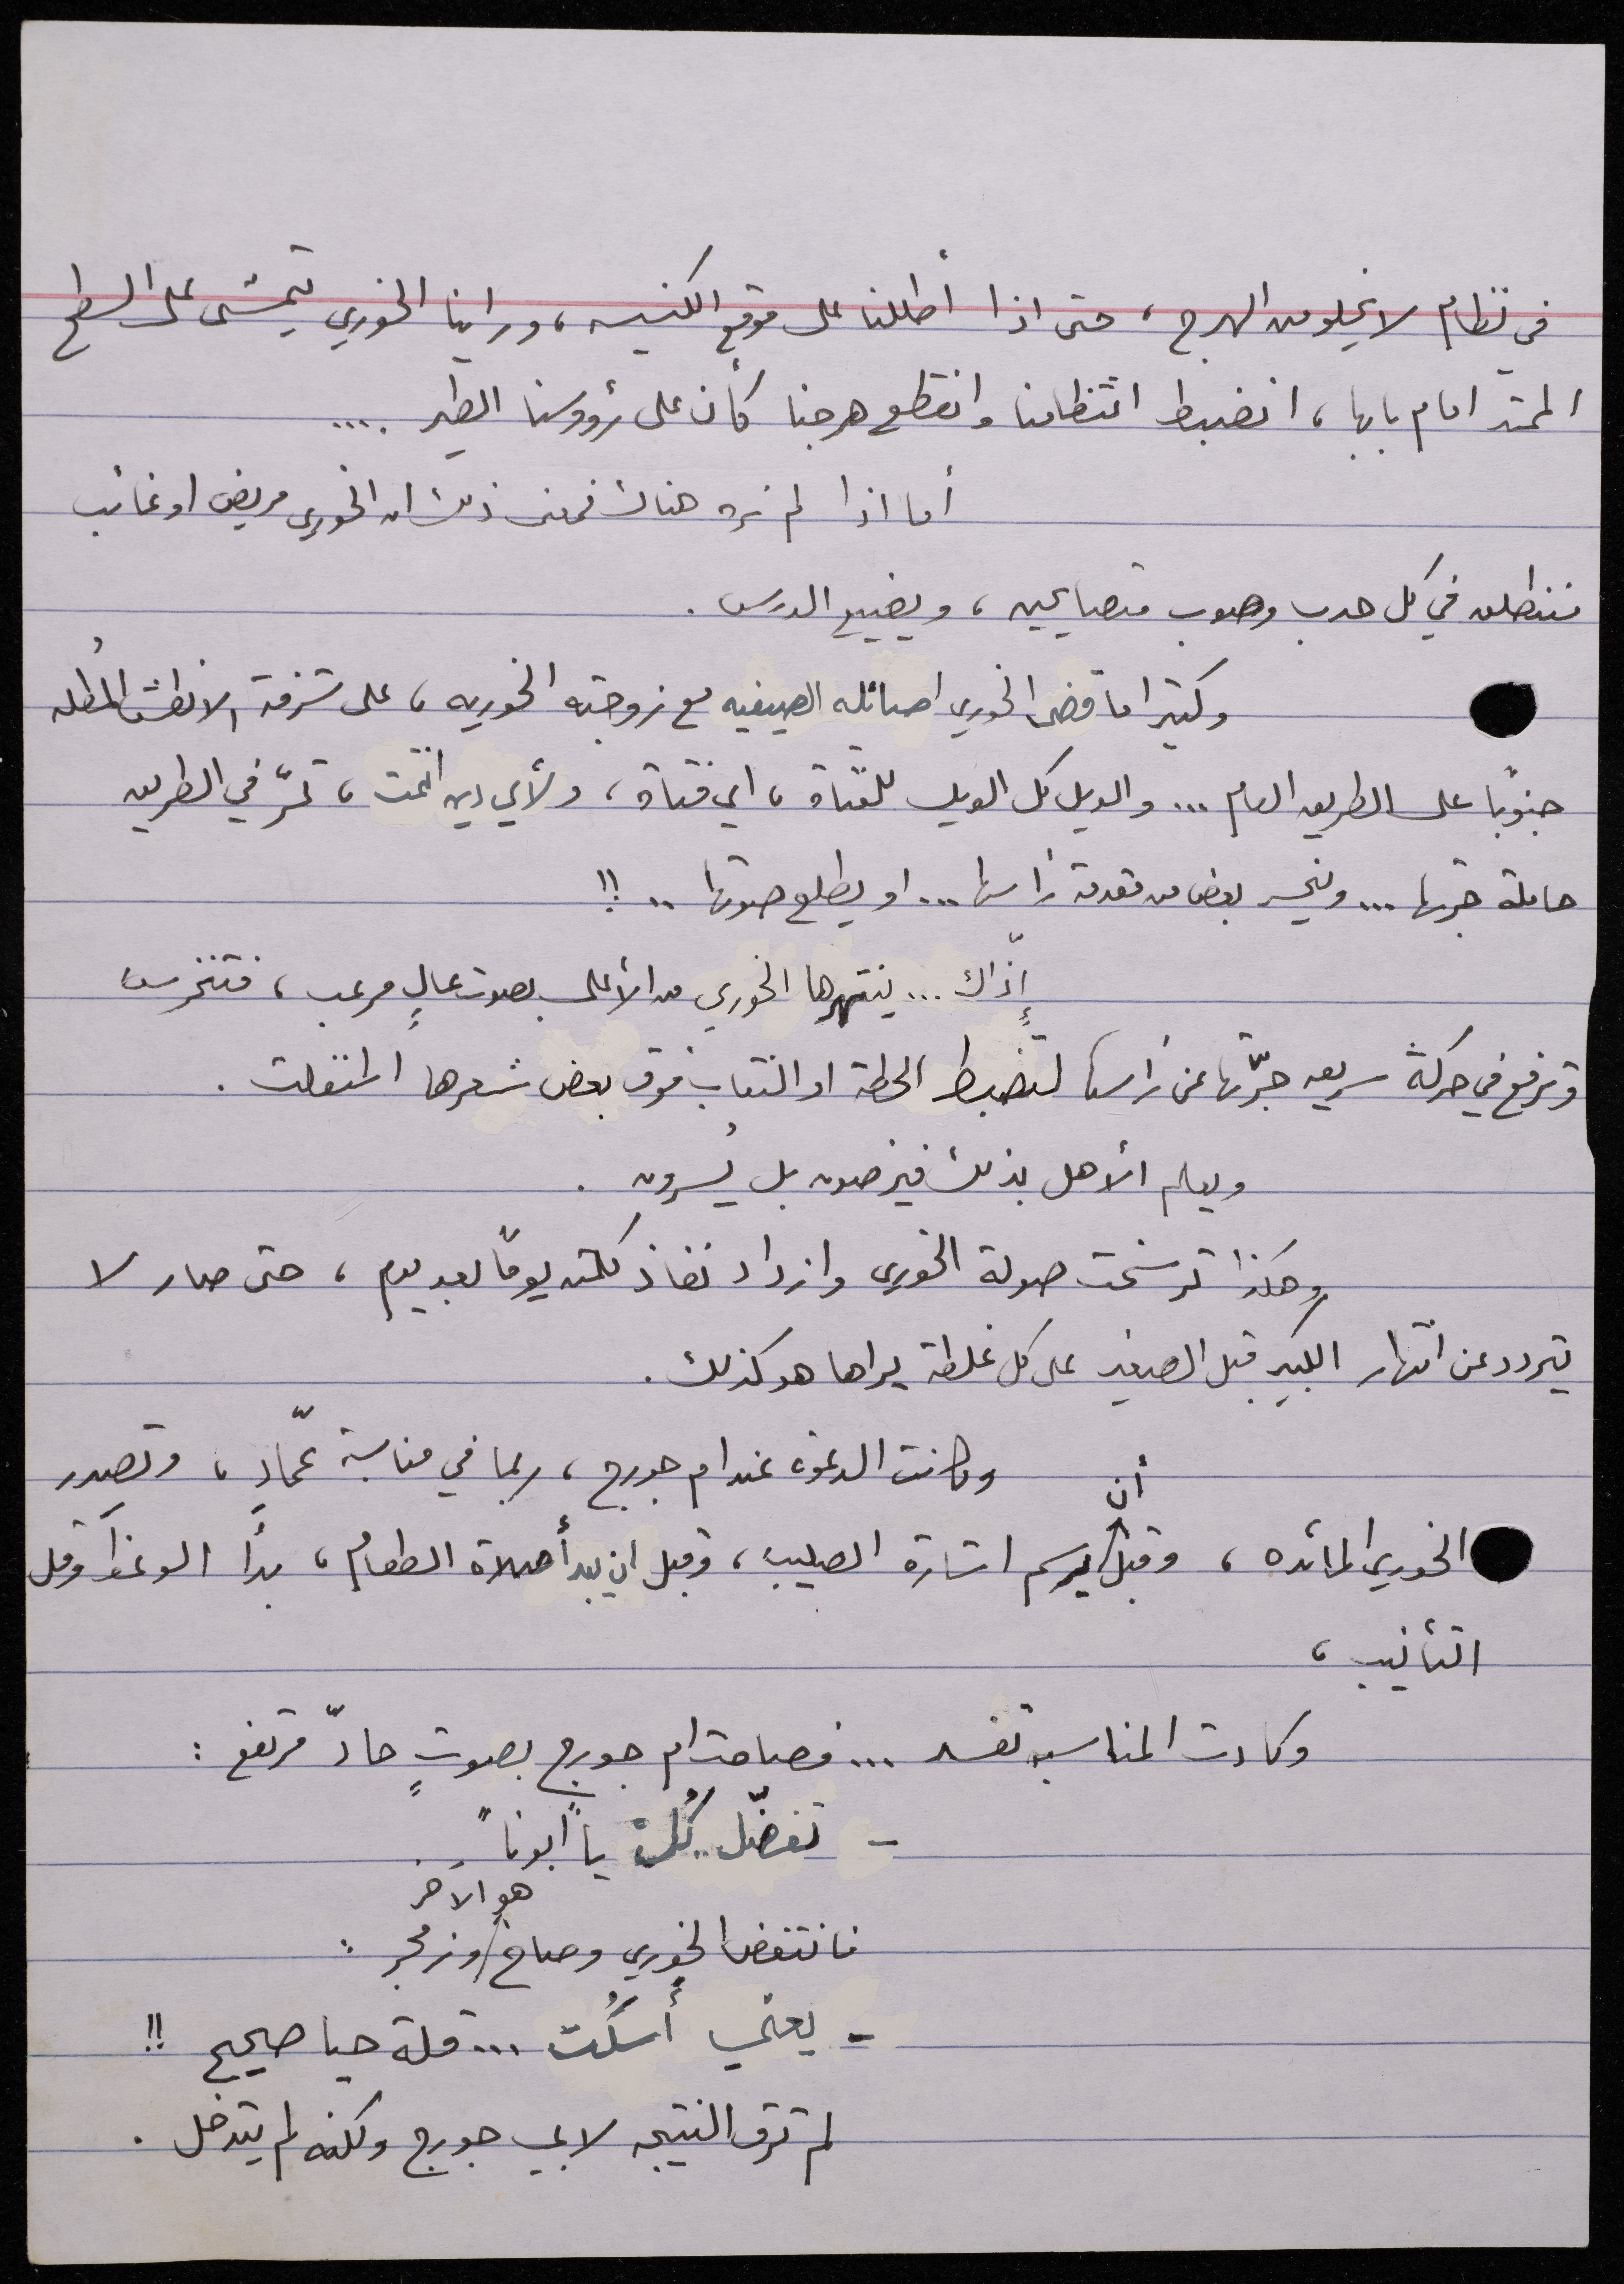 في نظام لا يخلو من الهرج ، حتى اذا أطللنا على موقع الكنيسه ، وراينا الخوري يتمشى على السطح
الممتد امام بابها ، انضبط انتظامنا وانقطع هرجنا كأن على رؤوسنا الطير ....
أما اذا لم نره هناك فمعنى ذلك ان الخوري مريض او غائب
فننطلق في كل حدب وصوب متصايحين ، ويضيع الدرس .
وكثيرا ما قضى الخوري اصائله الصيفيه مع زوجته الخوريه ، على شرفة الانطش المُطله
جنوبًا على الطريق العام ... والويل كل الويل للفتاة ، اي فتاة ، ولأي دين انتمت ، تمرّ في الطريق
حاملة جرتها ... وينحسر بعض من مقدمة رأسها ... او يطلع صوتها .. !!
إذّاك ... ينتهرها الخوري من الأعلى بصوت عالٍ مرعب ، فتنخرس
وترفع في حركة سريعه جرّتها عن رأسها لتضبط الحطة او النقاب فوق بعض شعرها المنفلت .
ويعلم الأهل بذلك فيرضون بل يُسرون .
وهكذا ترسخت صولة الخوري وازداد نفاذ كلمته يومًا بعد يوم ، حتى صار لا
يتردد عن انتهار الكبير قبل الصغير على كل غلطة يراها هو كذلك .
وكانت الدعوه عند ام جورج ، ربما في مناسبة عمّادٍ ، وتصدر
الخوري المائده ، وقبل أن يرسم اشارة الصليب ، وقبل ان يبدأ صلاة الطعام ، بدأ الوعظ وقل
التأنيب ،
وكادت المناسبه تفسد ... فصاحت ام جورج بصوتٍ حادّ مرتفع :
- تفضّل .. كُلْ يا "ابونا" ..
فانتفض الخوري وصاح هو الآخر وزمجر :
- يعني أُسكُت ... قلة حيا صحيح !!
لم ترق النتيجه لابي جورج ولكنه لم يتدخل .